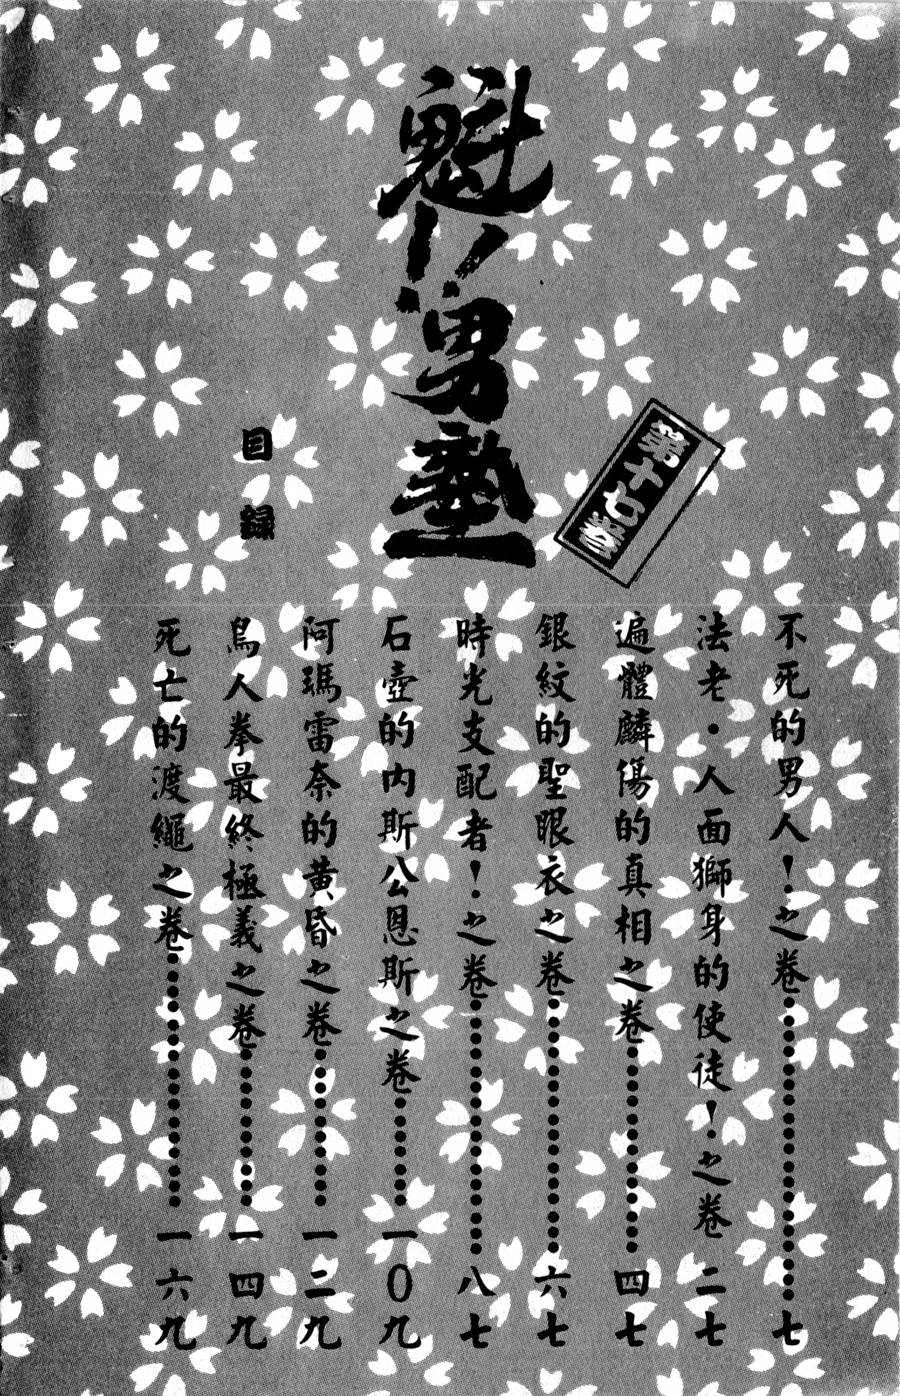 魁!!男塾
第十七卷
目録
不死的男人!之卷………七
法老・人面獅身的使徒!之卷 二七
遍體麟傷的真相之卷………四七
銀紋的聖眼衣之卷………六七
時光支配者!之卷………八七
石壺的內斯公恩斯之卷………一〇九
阿瑪雷奈的黃昏之卷………一二九
鳥人拳最終極義之卷………一四九
死亡的渡繩之卷………一六九